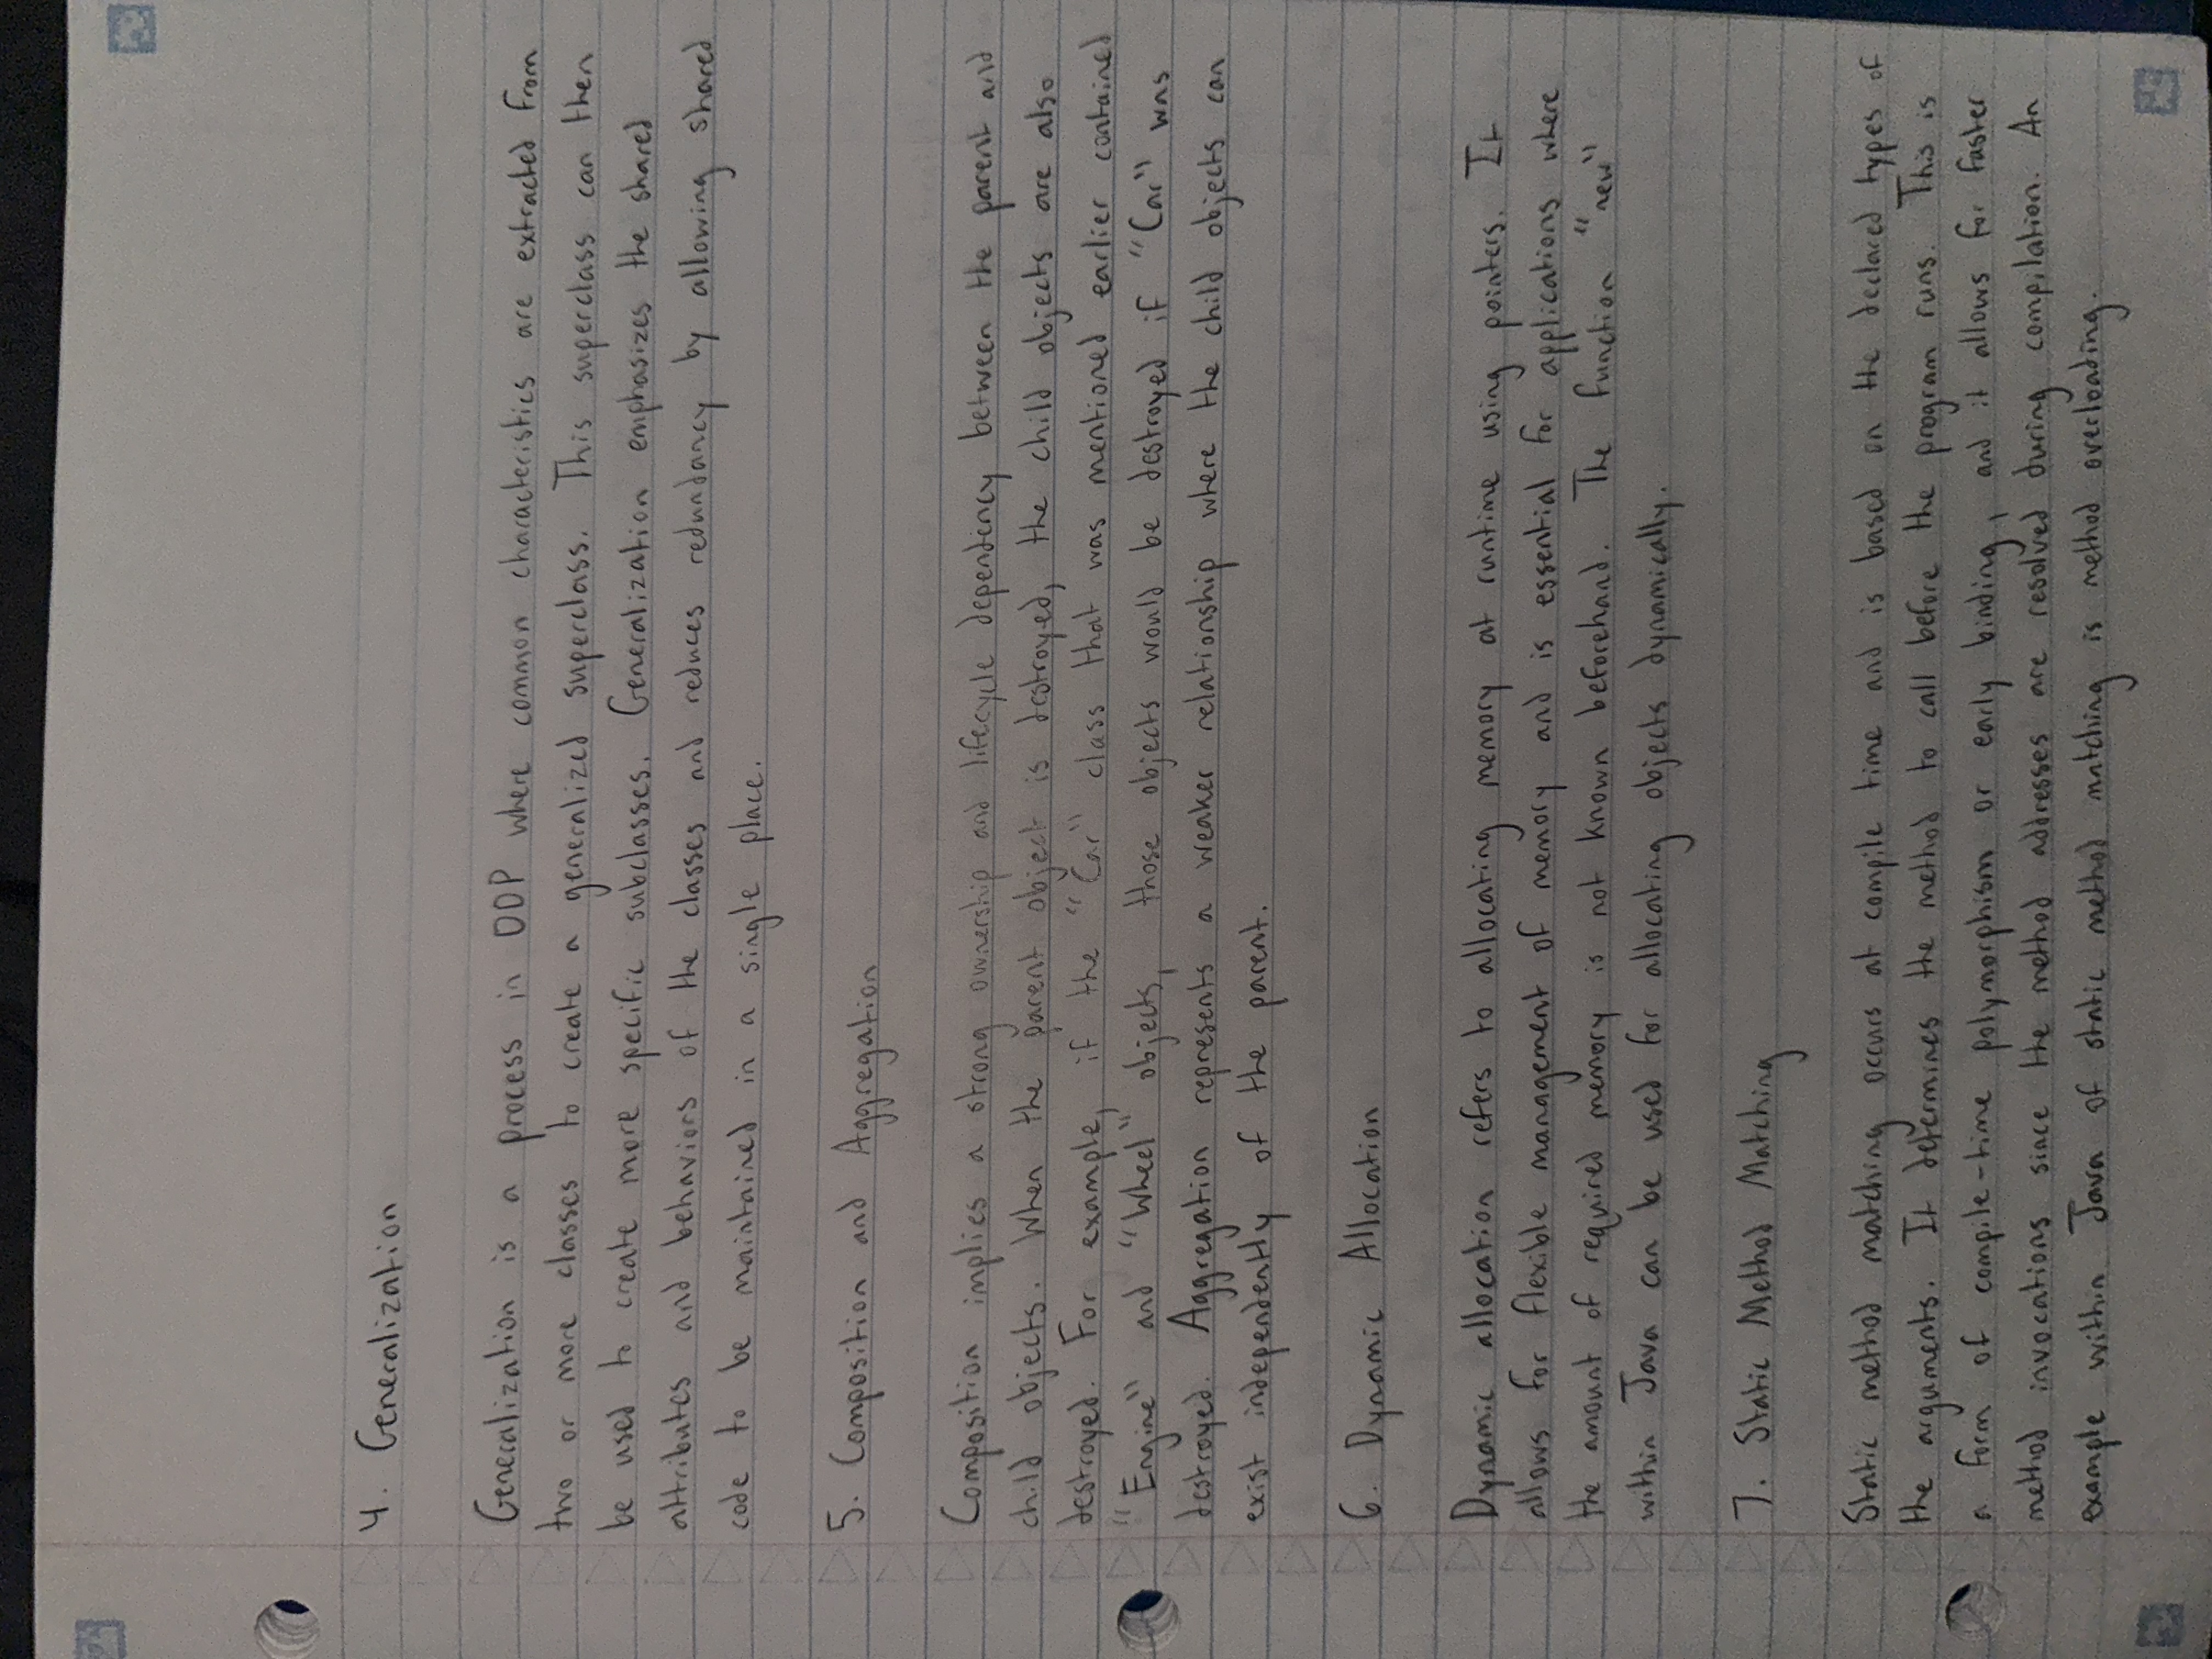 4. Generalization
Generalization is a process in OOP where common characteristics are extracted from
two or more classes to create a generalized superclass. This superclass can then
be used to create more specific subclasses. Generalization emphasizes the shared
attributes and behaviors of the classes and reduces redundancy by allowing shared
code to be maintained in a single place.
5. Composition and Aggregation
Composition implies a strong ownership and lifecycle dependency between the parent and
child objects. When the parent object is destroyed, the child objects are also
destroyed. For example, if the "Car" class that was mentioned earlier contained
"Engine" and "Wheel" objects, those objects would be destroyed if "Car" was
destroyed. Aggregation represents a weaker relationship where the child objects can
exist independently of the parent.
6. Dynamic Allocation
Dynamic allocation refers to allocating memory at runtime using pointers. It
allows for flexible management of memory and is essential for applications where
the amount of required memory is not known beforehand. The function "new"
within Java can be used for allocating objects dynamically.
7. Static Method Matching
Static method matching occurs at compile time and is based on the declared types of
the arguments. It determines the method to call before the program runs. This is
a form of compile-time polymorphism or early binding, and it allows for faster
method invocations since the method addresses are resolved during compilation. An
example within Java of static method matching is method overloading.